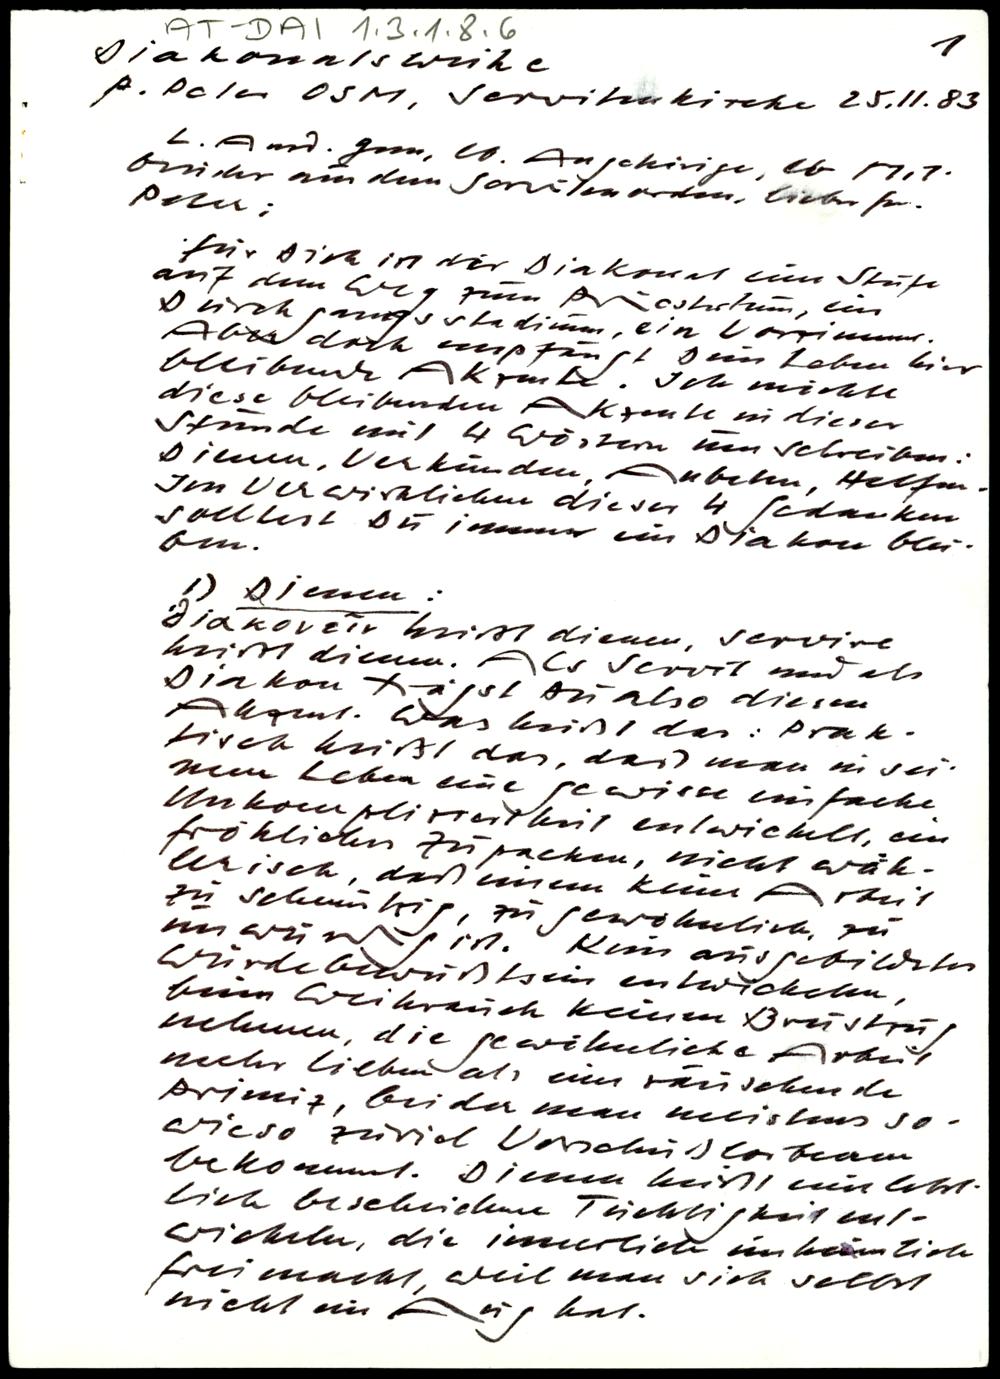 AT-DAI 1.3.1.8.6
1
Diakonatsweihe
P. Peter OSM, Servitenkirche 25.11.83
L. And. gem, lb. Angehörige, lb M.
brüder aus dem Servitenorden, lieber fr.
Peter:
für Dich ist der Diakonat eine Stufe
auf dem Weg zum Priestertum, ein
Durchgangsstadium, ein Vorzimmer.
Aber doch empfängt Dein Leben hier
bleibende Akzente. Ich möchte
diese bleibenden Akzente in dieser
Stunde mit 4 Wörtern umschreiben:
Dienen, Verkünden, Anbeten, Helfen.
Im Verwirklichen dieser 4 Gedanken
solltest Du immer ein Diakon blei-
ben.
1) Dienen:
Diakoneīn heißt dienen, servire
heißt dienen. Als Servit und als
Diakon trägst Du also diesen
Akzent. Was heißt das: Prak-
tisch heißt das, daß man in sei-
nem Leben eine gewisse einfache
Unkompliziertheit entwickelt, ein
fröhliches Zupacken, nicht wäh-
lerisch, daß einem keine Arbeit
zu schmutzig, zu gewöhnlich, zu
unwürdig ist. Kein ausgebildetes
Würdebewußtsein entwickeln,
beim Weihrauch keinen Brustzug
nehmen, die gewöhnliche Arbeit
mehr lieben als eine rauschende
Primiz, bei der man meistens so-
wieso zuviel Vorschußlorbeeren
bekommt. Dienen heißt eine letzt-
lich bescheidene Tüchtigkeit ent-
wickeln, die innerlich unheimlich
frei macht, weil man sich selbst
nicht im Aug hat.